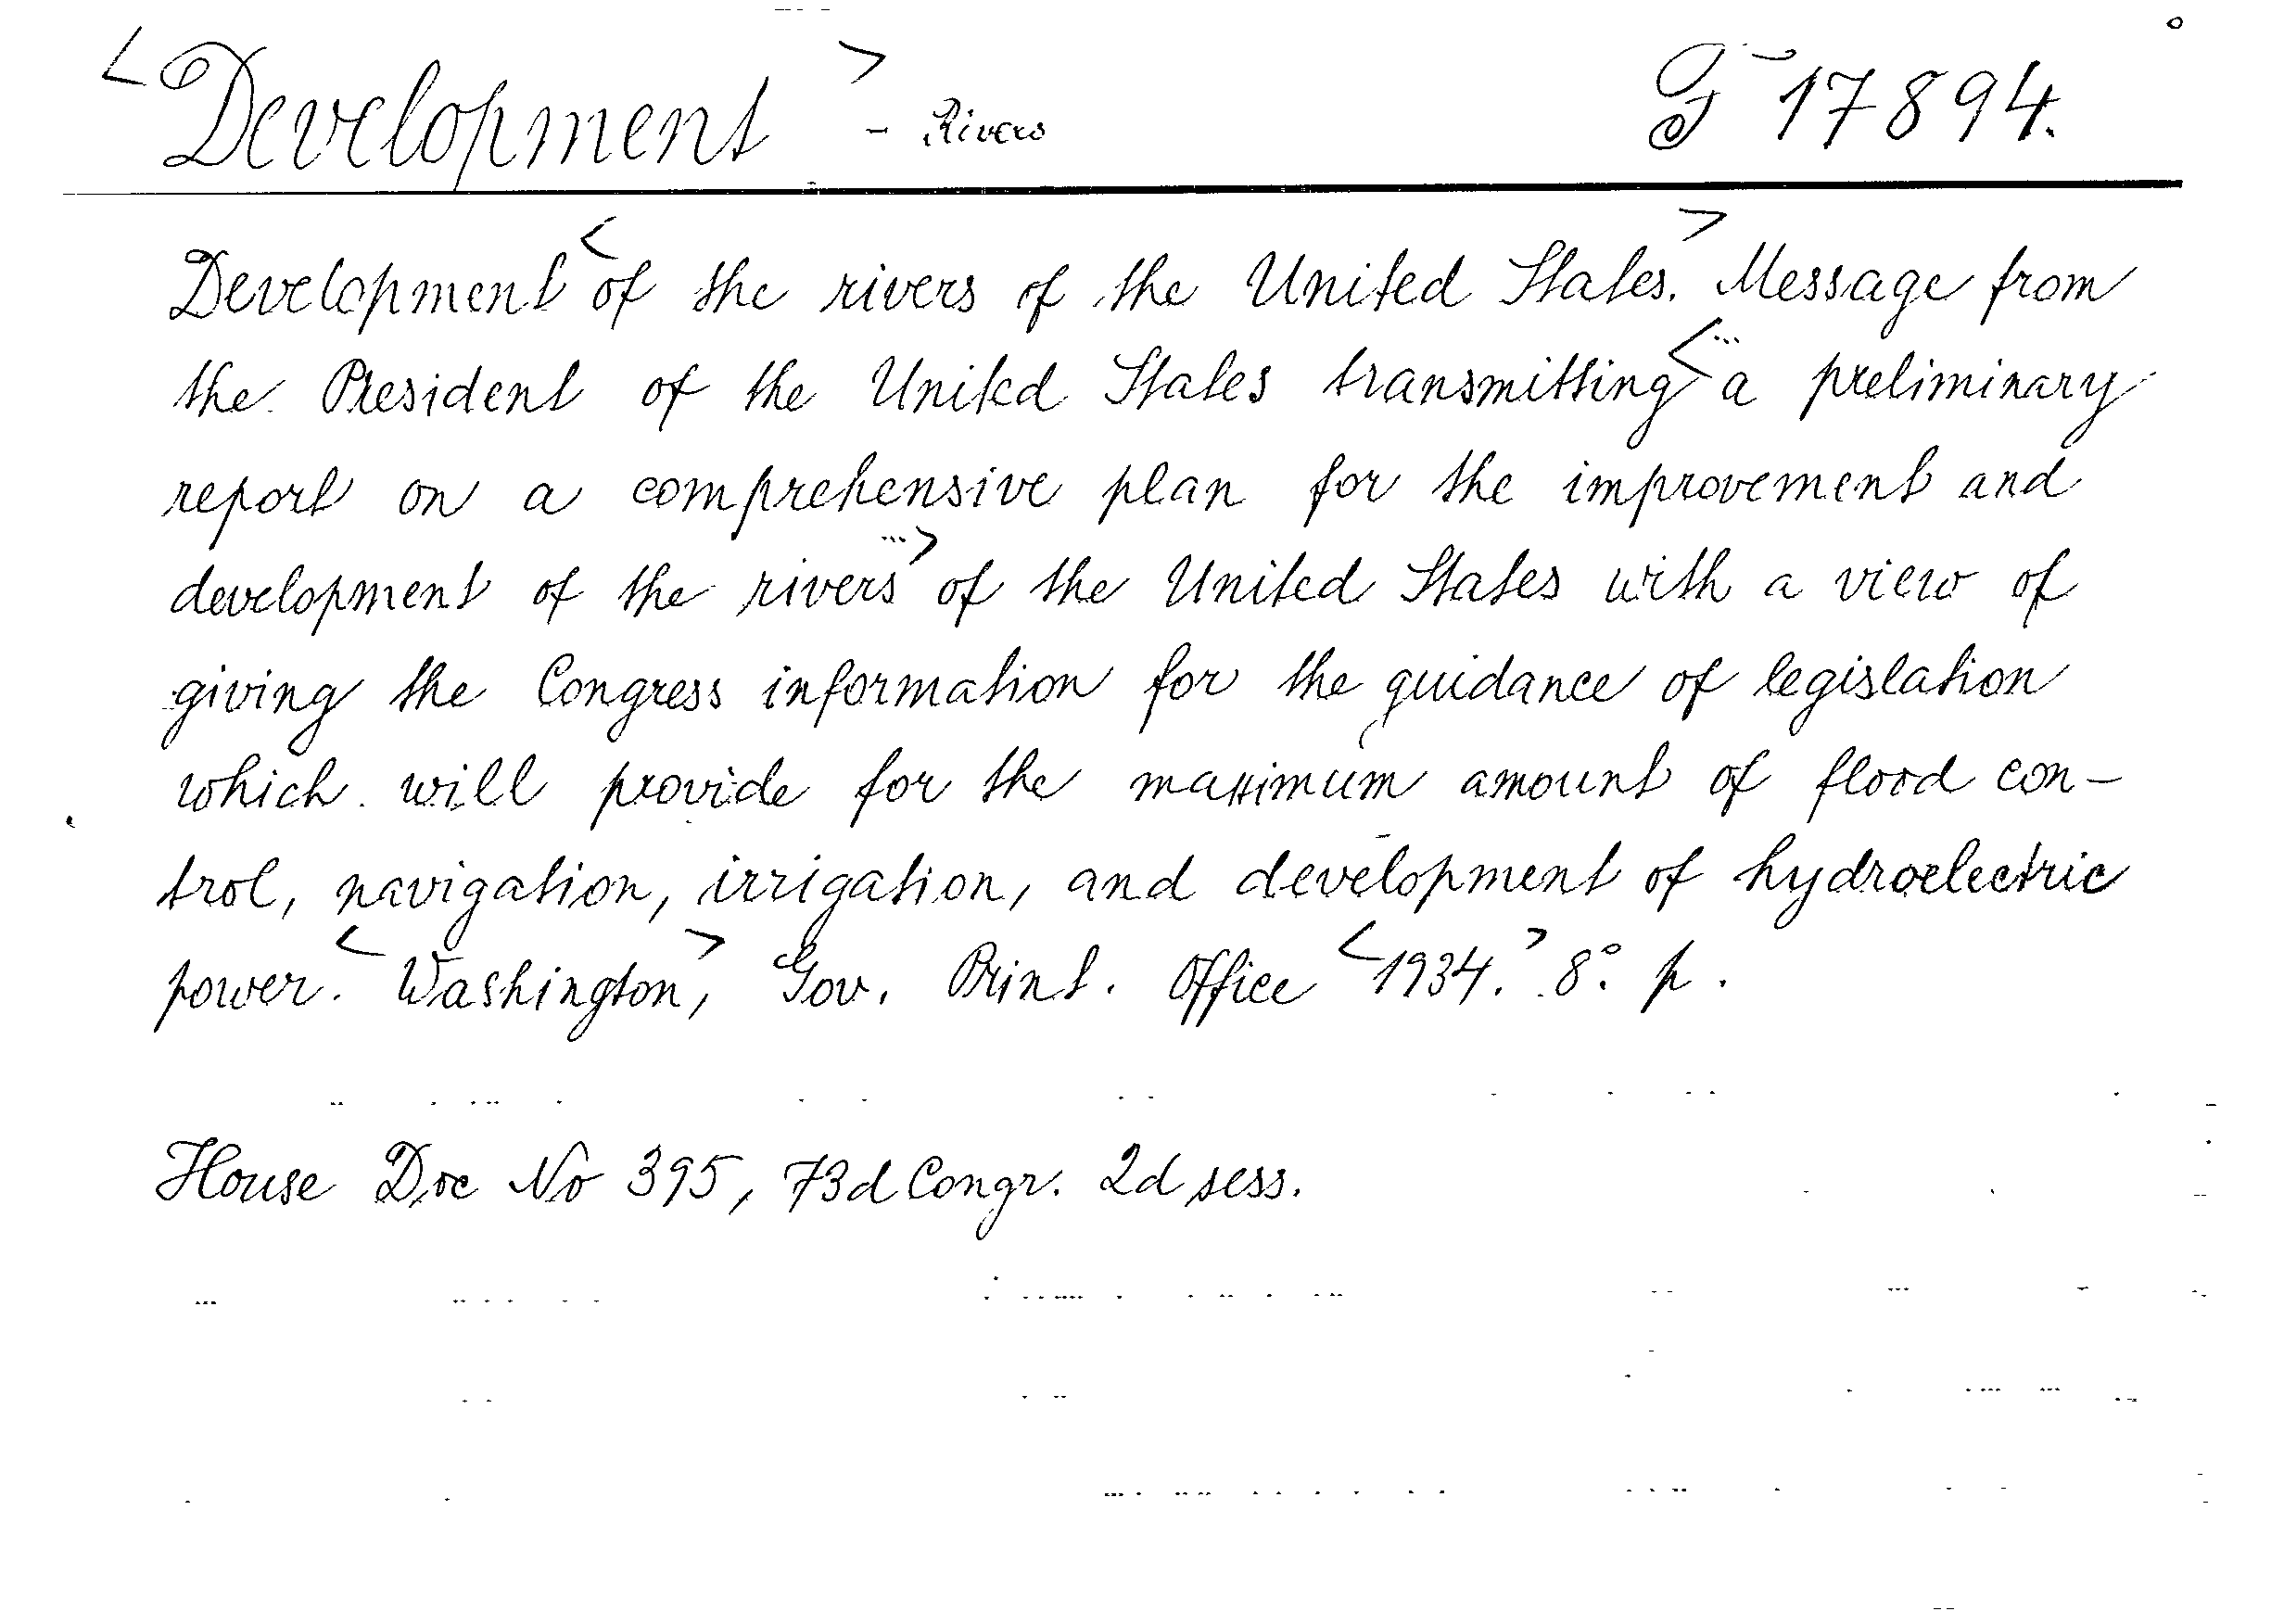 <Development> - Rivers G 17894.
Development <of the rivers of the United States.> Message from
the President of the United States transmitting <... a preliminary
report on a comprehensive plan for the improvement and
development of the rivers ...> of the United States with a view of
giving the Congress information for the guidance of legislation
which will provide for the maximum amount of flood con-
trol, navigation, irrigation, and development of hydroelectric
power. <Washington,> Gov. Print. Office <1934.> 8°. p.
House Doc No 395, 73d Congr. 2d sess.